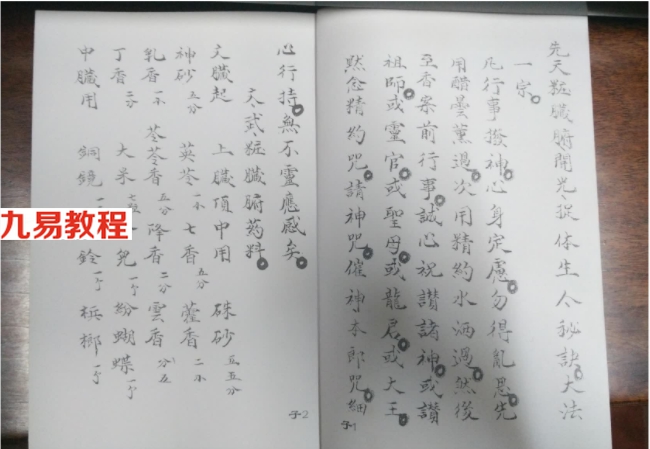 先天粧臟腑開光捉体生人秘訣大法
一宗
凡行事撥神心身定慮勿得亂思先
用醋曇熏過次用精約水洒過然後
至香案前行事誠心祝讚諸神或讚
祖師或靈官或聖母或龍君或大王
默念精約咒請神咒催神本郎咒細
于1
心行持無不靈應感矣
文武粧臟腑药料
文臟起 上臟頂中用 硃砂五分
神砂五分 英苓一小 七香五分 藿香二小
乳香一小 苓苓香五分 降香二分 雲香
丁香二分 大米 兔一个 紛蝴蝶一个
中臟用 銅鏡 鈴一个 梹榔一个
于2
九易教程